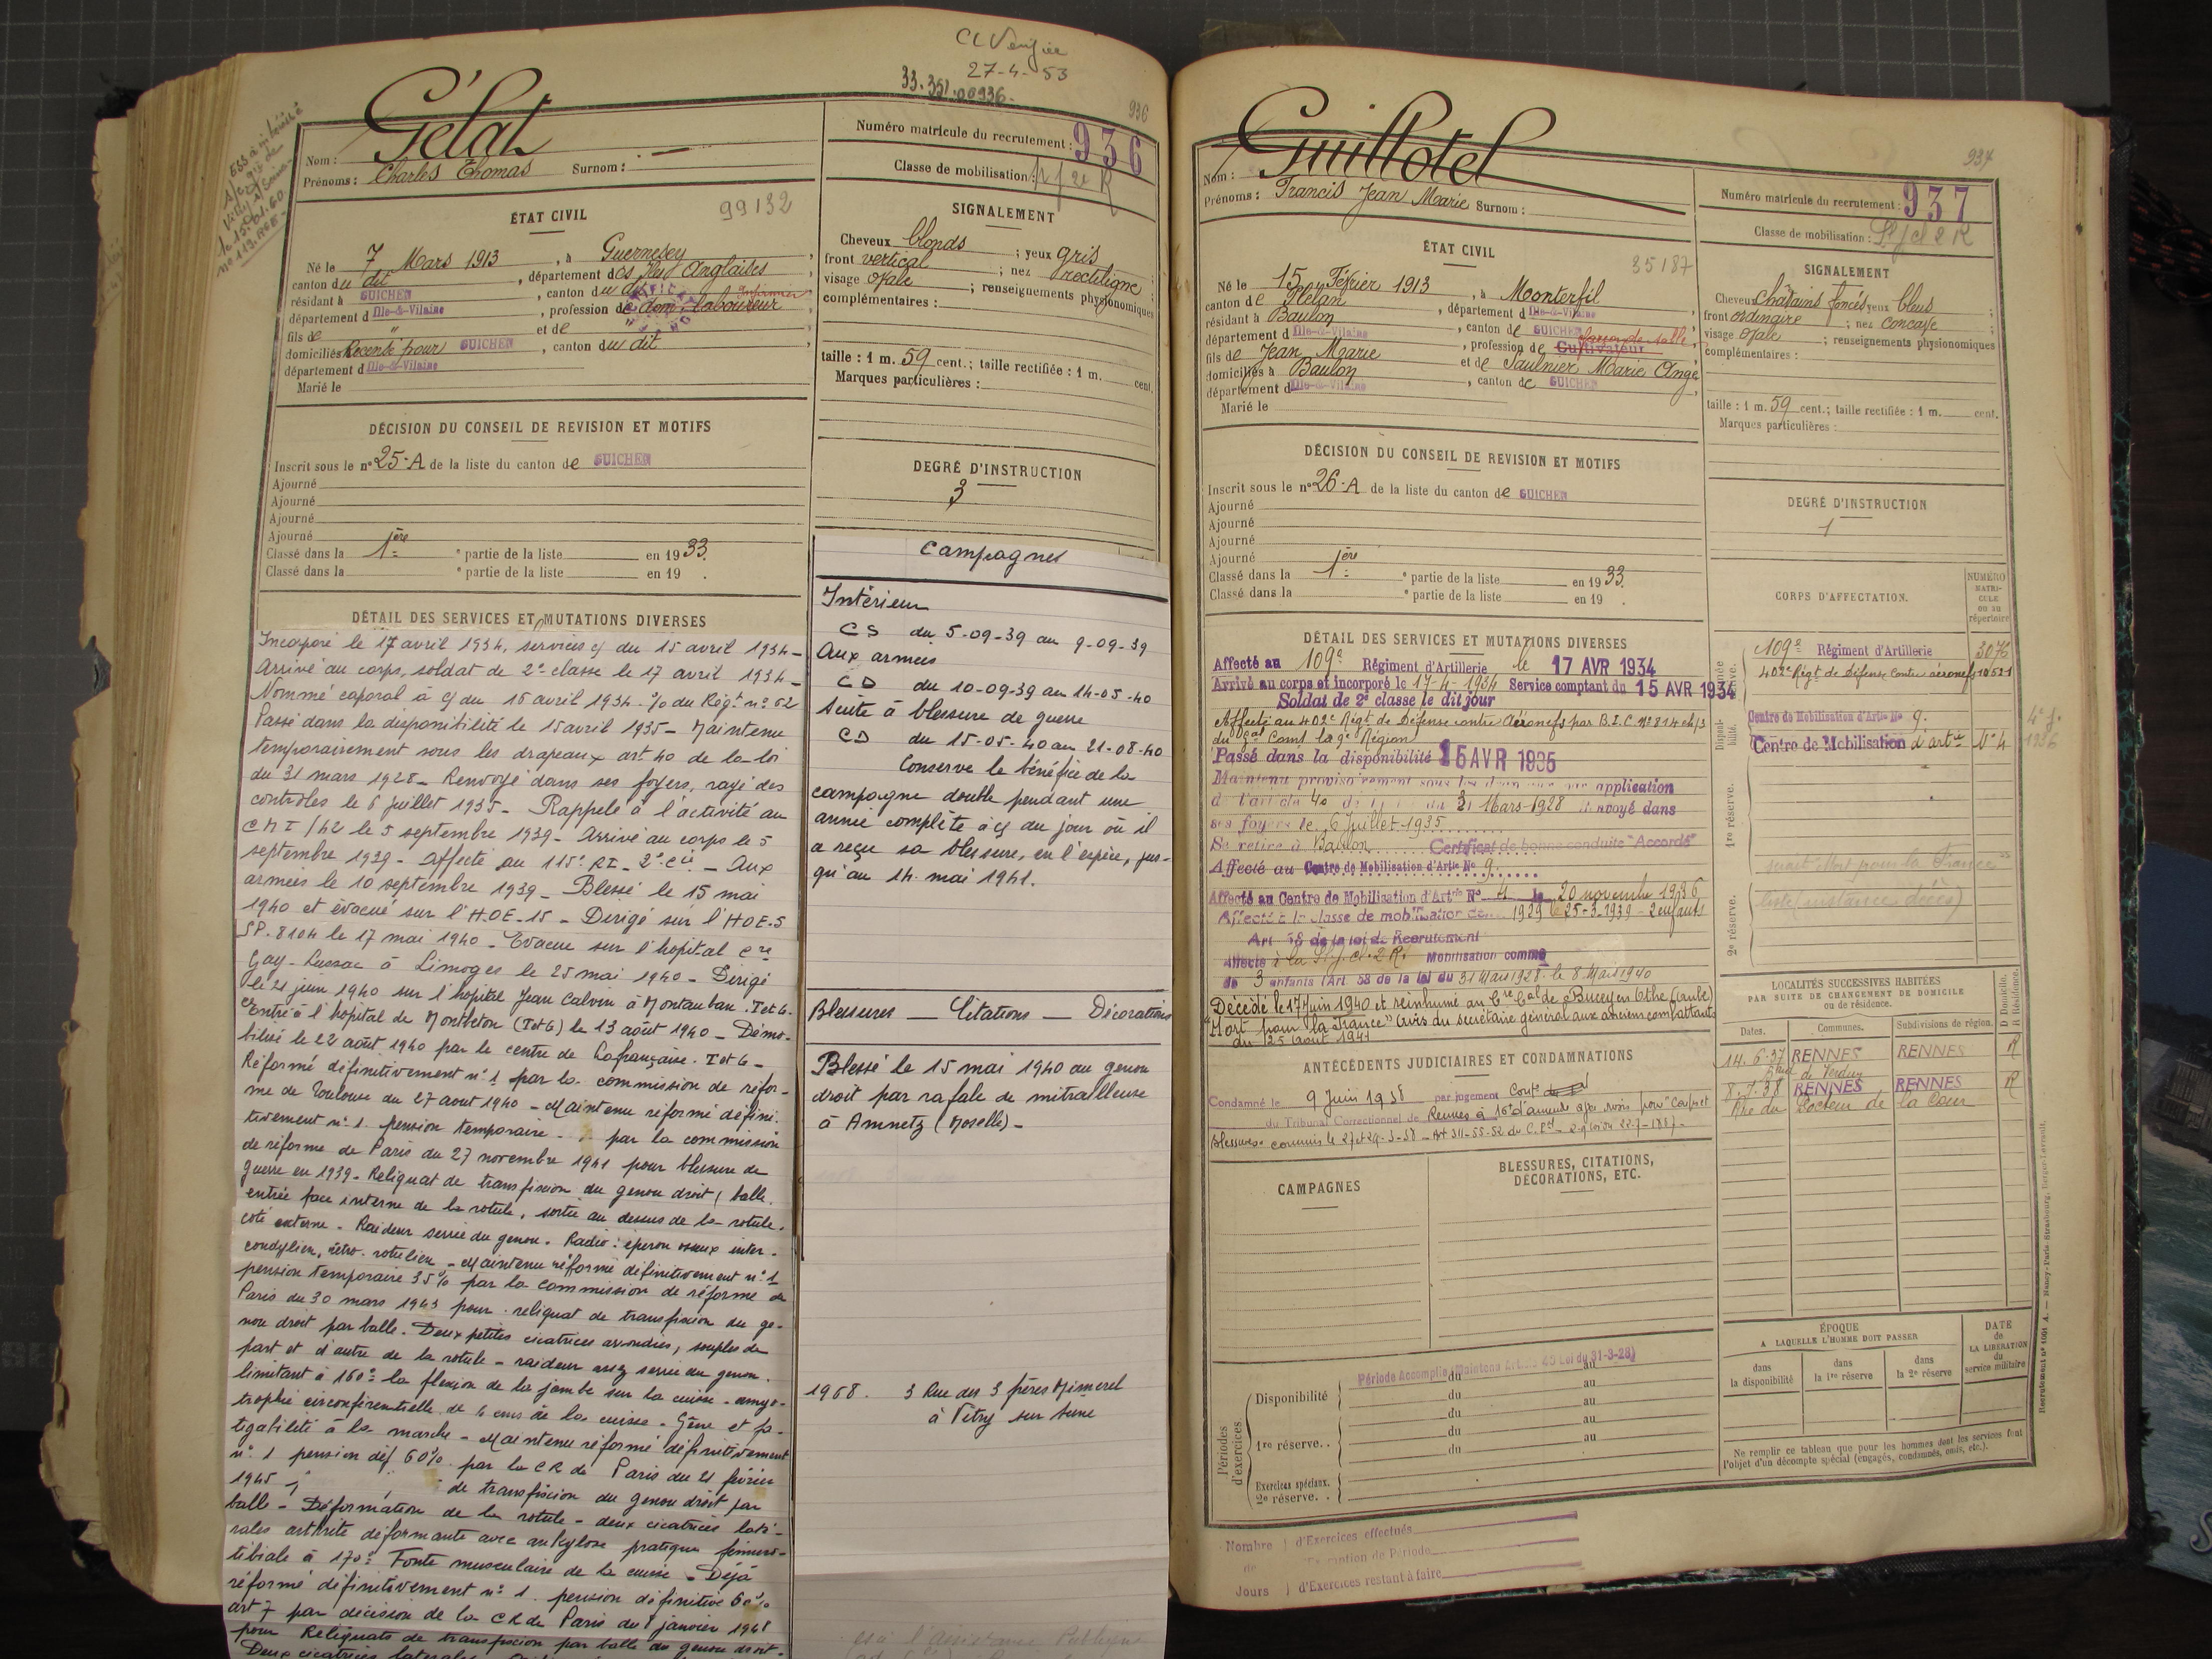 CL Verifiée
27-4-53
33.351.00936.
936
Gélat
Nom :
Prénoms : Charles Thomas Surnom : —
Numéro matricule du recrutement : 936
Classe de mobilisation :
ÉTAT CIVIL
99132
Né le 7 Mars 1913, à Guernesey,
canton du dit, département des Iles Anglaises
résidant à GUICHEN, canton du dit
département d Ille-&-Vilaine, profession de dom. laboureur
Infirmier
fils de " et de
domiciliés Recensé pour GUICHEN, canton du dit
département d Ille-&-Vilaine
Marié le
SIGNALEMENT
Cheveux blonds ; yeux gris
front vertical ; nez rectiligne
visage ovale ; renseignements physionomiques
complémentaires :
taille : 1 m. 59 cent. ; taille rectifiée : 1 m. cent.
Marques particulières :
DÉCISION DU CONSEIL DE REVISION ET MOTIFS
Inscrit sous le n° 25-A de la liste du canton de GUICHEN
Ajourné
Ajourné
Ajourné
Ajourné
Classé dans la 1ère partie de la liste en 1933.
Classé dans la partie de la liste en 19 .
DEGRÉ D'INSTRUCTION
3
DÉTAIL DES SERVICES ET MUTATIONS DIVERSES
Incorporé le 17 avril 1934, services cf du 15 avril 1934 -
Arrivé au corps, soldat de 2e classe le 17 avril 1934 -
Nommé caporal à cf du 16 avril 1934. % du Régt n° 62
Passé dans la disponibilité le 15 avril 1935 - Maintenu
temporairement sous les drapeaux art 40 de la loi
du 31 mars 1928 - Renvoyé dans ses foyers, rayé des
contrôles le 6 juillet 1935 - Rappelé à l'activité au
CMI/42 le 5 septembre 1939 - Arrivé au corps le 5
septembre 1939 - Affecté au 115e RI - 2e Cie - Aux
armées le 10 septembre 1939 - Blessé le 15 mai
1940 et évacué sur l'H.OE-15 - Dirigé sur l'HOE-5
SP. 8104 le 17 mai 1940 - Evacué sur l'hopital Cre
Gay-Lussac à Limoges le 25 mai 1940 - Dirigé
le 21 juin 1940 sur l'hopital Jean Calvin à Montauban. T et G -
Entré à l'hopital de Montbeton (T et G) le 13 août 1940 - Démo-
bilisé le 22 août 1940 par le centre de Lafrançaise. T et G -
Réformé définitivement n° 1 par la commission de réfor-
me de Toulouse du 27 aout 1940 - Maintenu réformé défini-
tivement n° 1. pension temporaire par la commission
de réforme de Paris du 27 novembre 1941 pour blessure de
guerre en 1939 - Reliquat de transfixion du genou droit, balle
entrée face interne de la rotule, sortie au dessus de la rotule.
coté externe - Raideur serrée du genou - Radio : éperon osseux inter-
condylien, rétro-rotulien - Maintenu réformé définitivement n° 1
pension temporaire 35% par la commission de réforme de
Paris du 30 mars 1943 pour reliquat de transfixion du ge-
nou droit par balle. Deux petites cicatrices arrondies, souples de
part et d'autre de la rotule - raideur assez serrée du genou.
limitant à 160° la flexion de la jambe sur la cuisse - amyo-
trophie circonférentielle de 4 cms de la cuisse - Gêne et fa-
tigabilité à la marche - Maintenu réformé définitivement
n° 1 pension déf 60% par la CR de Paris du 21 février
1945 de transfixion du genou droit par
balle - Déformation de la rotule - deux cicatrices laté-
rales arthrite déformante avec ankylose pratique fémuro-
tibiale à 170° Fonte musculaire de la cuisse - Déjà
réformé définitivement n° 1. pension définitive 60%
art 7 par décision de la CR de Paris du 8 janvier 1948
pour Reliquats de transfixion par balle du genou droit -
Deux cicatrices latérales
Campagnes
Intérieur
CS du 5-09-39 au 9-09-39
Aux armées
CD du 10-09-39 au 14-05-40
Suite à blessure de guerre
CD du 15-05-40 au 21-08-40
Conserve le bénéfice de la
campagne double pendant une
année complète à cf du jour où il
a reçu sa blessure, en l'espèce, jus-
qu'au 14 mai 1941.
Blessures — Citations — Décorations
Blessé le 15 mai 1940 au genou
droit par rafale de mitrailleuse
à Amnetz (Moselle) -
1968. 3 Rue des 3 frères Mimerel
à Vitry sur Seine
937
Guillotel
Nom :
Prénoms : Francis Jean Marie Surnom :
Numéro matricule du recrutement : 937
Classe de mobilisation :
ÉTAT CIVIL
35187
Né le 15 Février 1913, à Monterfil
canton de Plélan, département d Ille-&-Vilaine
résidant à Baulon, canton de GUICHEN
département d Ille-&-Vilaine, profession de Cultivateur
garçon de salle
fils de Jean Marie et de Saulnier Marie Ange
domiciliés à Baulon, canton de GUICHEN
département d Ille-&-Vilaine
Marié le
SIGNALEMENT
Cheveux châtains foncés yeux bleus
front ordinaire ; nez concave
visage ovale ; renseignements physionomiques
complémentaires :
taille : 1 m. 59 cent. ; taille rectifiée : 1 m. cent.
Marques particulières :
DÉCISION DU CONSEIL DE REVISION ET MOTIFS
Inscrit sous le n° 26-A de la liste du canton de GUICHEN
Ajourné
Ajourné
Ajourné
Ajourné
Classé dans la 1ère partie de la liste en 1933.
Classé dans la partie de la liste en 19 .
DEGRÉ D'INSTRUCTION
1
CORPS D'AFFECTATION.
NUMÉRO MATRICULE ou au répertoire
109e Régiment d'Artillerie 3076
402e Régt de Défense contre aéronefs 10521
Centre de Mobilisation d'Artie No 9.
Centre de Mobilisation d'artie N° 4
Disponibilité.
1re réserve.
2e réserve.
DÉTAIL DES SERVICES ET MUTATIONS DIVERSES
Affecté au 109e Régiment d'Artillerie le 17 AVR 1934
Arrivé au corps et incorporé le 17-4-1934 Service comptant du 15 AVR 1934
Soldat de 2e classe le dit jour
Affecté au 402e Régt de Défense contre Aéronefs par B.I.C. N° 814 ch/3
du Gal Comt la 9e Région
Passé dans la disponibilité 15 AVR 1935
Maintenu provisoirement sous les drapeaux par application
de l'article 40 de la loi du 31 Mars 1928 Renvoyé dans
ses foyers le 6 Juillet 1935
Se retire à Baulon Certificat de bonne conduite "Accordé"
Affecté au Centre de Mobilisation d'Artie No 9
Affecté au Centre de Mobilisation d'Artie N° 4 le 20 novembre 1936
Affecté à la classe de mobilisation de 1929 le 25-3-1939 - 2 enfants
Art 58 de la loi de Recrutement
Affecté à la Mobilisation comme
de 3 enfants (Art 58 de la loi du 31 Mars 1928 le 8 Mai 1940
Décédé le 17 Juin 1940 et réinhumé au Cre Cal de Bucey en Othe (aube)
"Mort pour la France" avis du secrétaire général aux anciens combattants
du 25 août 1941
ANTÉCÉDENTS JUDICIAIRES ET CONDAMNATIONS
Condamné le 9 Juin 1938 par jugement Cont
du Tribunal Correctionnel de Rennes à 16f d'amende avec sursis pour "Coups et
Blessures"
LOCALITÉS SUCCESSIVES HABITÉES
PAR SUITE DE CHANGEMENT DE DOMICILE
ou de résidence.
D Domicile. R Résidence.
Dates. Communes. Subdivisions de région.
14.6.37 RENNES RENNES R
Bd de Verdun
8.7.38 RENNES RENNES R
Rue du Docteur de la Cour
CAMPAGNES
BLESSURES, CITATIONS,
DÉCORATIONS, ETC.
ÉPOQUE
A LAQUELLE L'HOMME DOIT PASSER
dans la disponibilité
dans la 1re réserve
dans la 2e réserve
DATE de LA LIBÉRATION du service militaire
Périodes d'exercices
Période Accomplie (Maintenu Art. 45 Loi du 31-3-28)
Disponibilité du au
du au
du au
1re réserve. . du au
du au
Exercices spéciaux.
2e réserve. .
Ne remplir ce tableau que pour les hommes dont les services font
l'objet d'un décompte spécial (engagés, condamnés, omis, etc.).
Nombre d'Exercices effectués
de Exemption de Période
Jours d'Exercices restant à faire